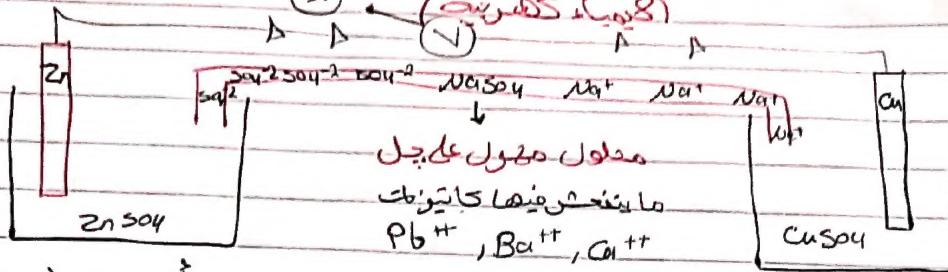 (كيمياء كهربية)
V
Zn SO4-2 SO4-2 SO4-2 SO4-2 NaSO4 Na+ Na+ Na+ Na+ Cu
محلول محمول على جل
ما ينفعش فيها كاتيونات
Pb++ , Ba++ , Ca++
ZnSO4 CuSO4